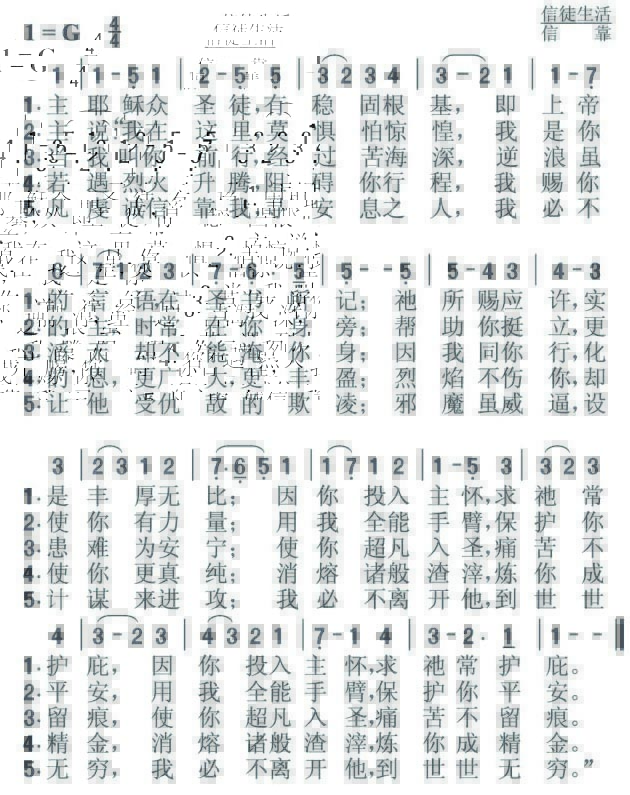 信徒生活
1=G 4/4
信 靠
1 | 1 - 5 1 | 2 - 5 5 | 3 2 3 4 | 3 - 2 1 | 1 - 7
1. 主 耶 稣众 圣 徒,有 稳 固根 基, 即 上 帝
2. 主 说“我在 这 里,莫 惧 怕惊 惶, 我 是 你
3. 我 叫你 前 行,经 过 苦海 深, 逆 浪 虽
4. 若 遇 烈火 升 腾,阻 碍 你行 程, 我 赐 你
5. 凡 虔 诚信 靠 我,前 安 息之 人, 我 必 不
6 | 7 1 2 3 | 7 - 6 · 5 | 5 - - 5 | 5 - 4 3 | 4 - 3
1. 的 言 语在 圣 书 所 记; 祂 所 赐应 许,实
2. 的 主 时常 在 你 身 旁; 帮 助 你挺 立,更
3. 滔 天 却不 能 淹 你 身; 因 我 同你 行,化
4. 的 恩, 更广 大,更 丰 盈; 烈 焰 不伤 你,却
5. 让 他 受仇 敌 的 欺 凌; 邪 魔 虽威 逼,设
3 | 2 3 1 2 | 7 · 6 5 1 | 1 7 1 2 | 1 - 5 3 | 3 2 3
1. 是 丰 厚无 比; 因 你 投入 主 怀,求 祂 常
2. 使 你 有力 量; 用 我 全能 手 臂,保 护 你
3. 患 难 为安 宁; 使 你 超凡 入 圣,痛 苦 不
4. 使 你 更真 纯; 消 熔 诸般 渣 滓,炼 你 成
5. 计 谋 来进 攻; 我 必 不离 开 他,到 世 世
4 | 3 - 2 3 | 4 3 2 1 | 7 - 1 4 | 3 - 2 · 1 | 1 - -
1. 护 庇, 因 你 投入 主 怀,求 祂 常 护 庇。
2. 平 安, 用 我 全能 手 臂,保 护 你 平 安。
3. 留 痕, 使 你 超凡 入 圣,痛 苦 不 留 痕。
4. 精 金, 消 熔 诸般 渣 滓,炼 你 成 精 金。
5. 无 穷, 我 必 不离 开 他,到 世 世 无 穷。”